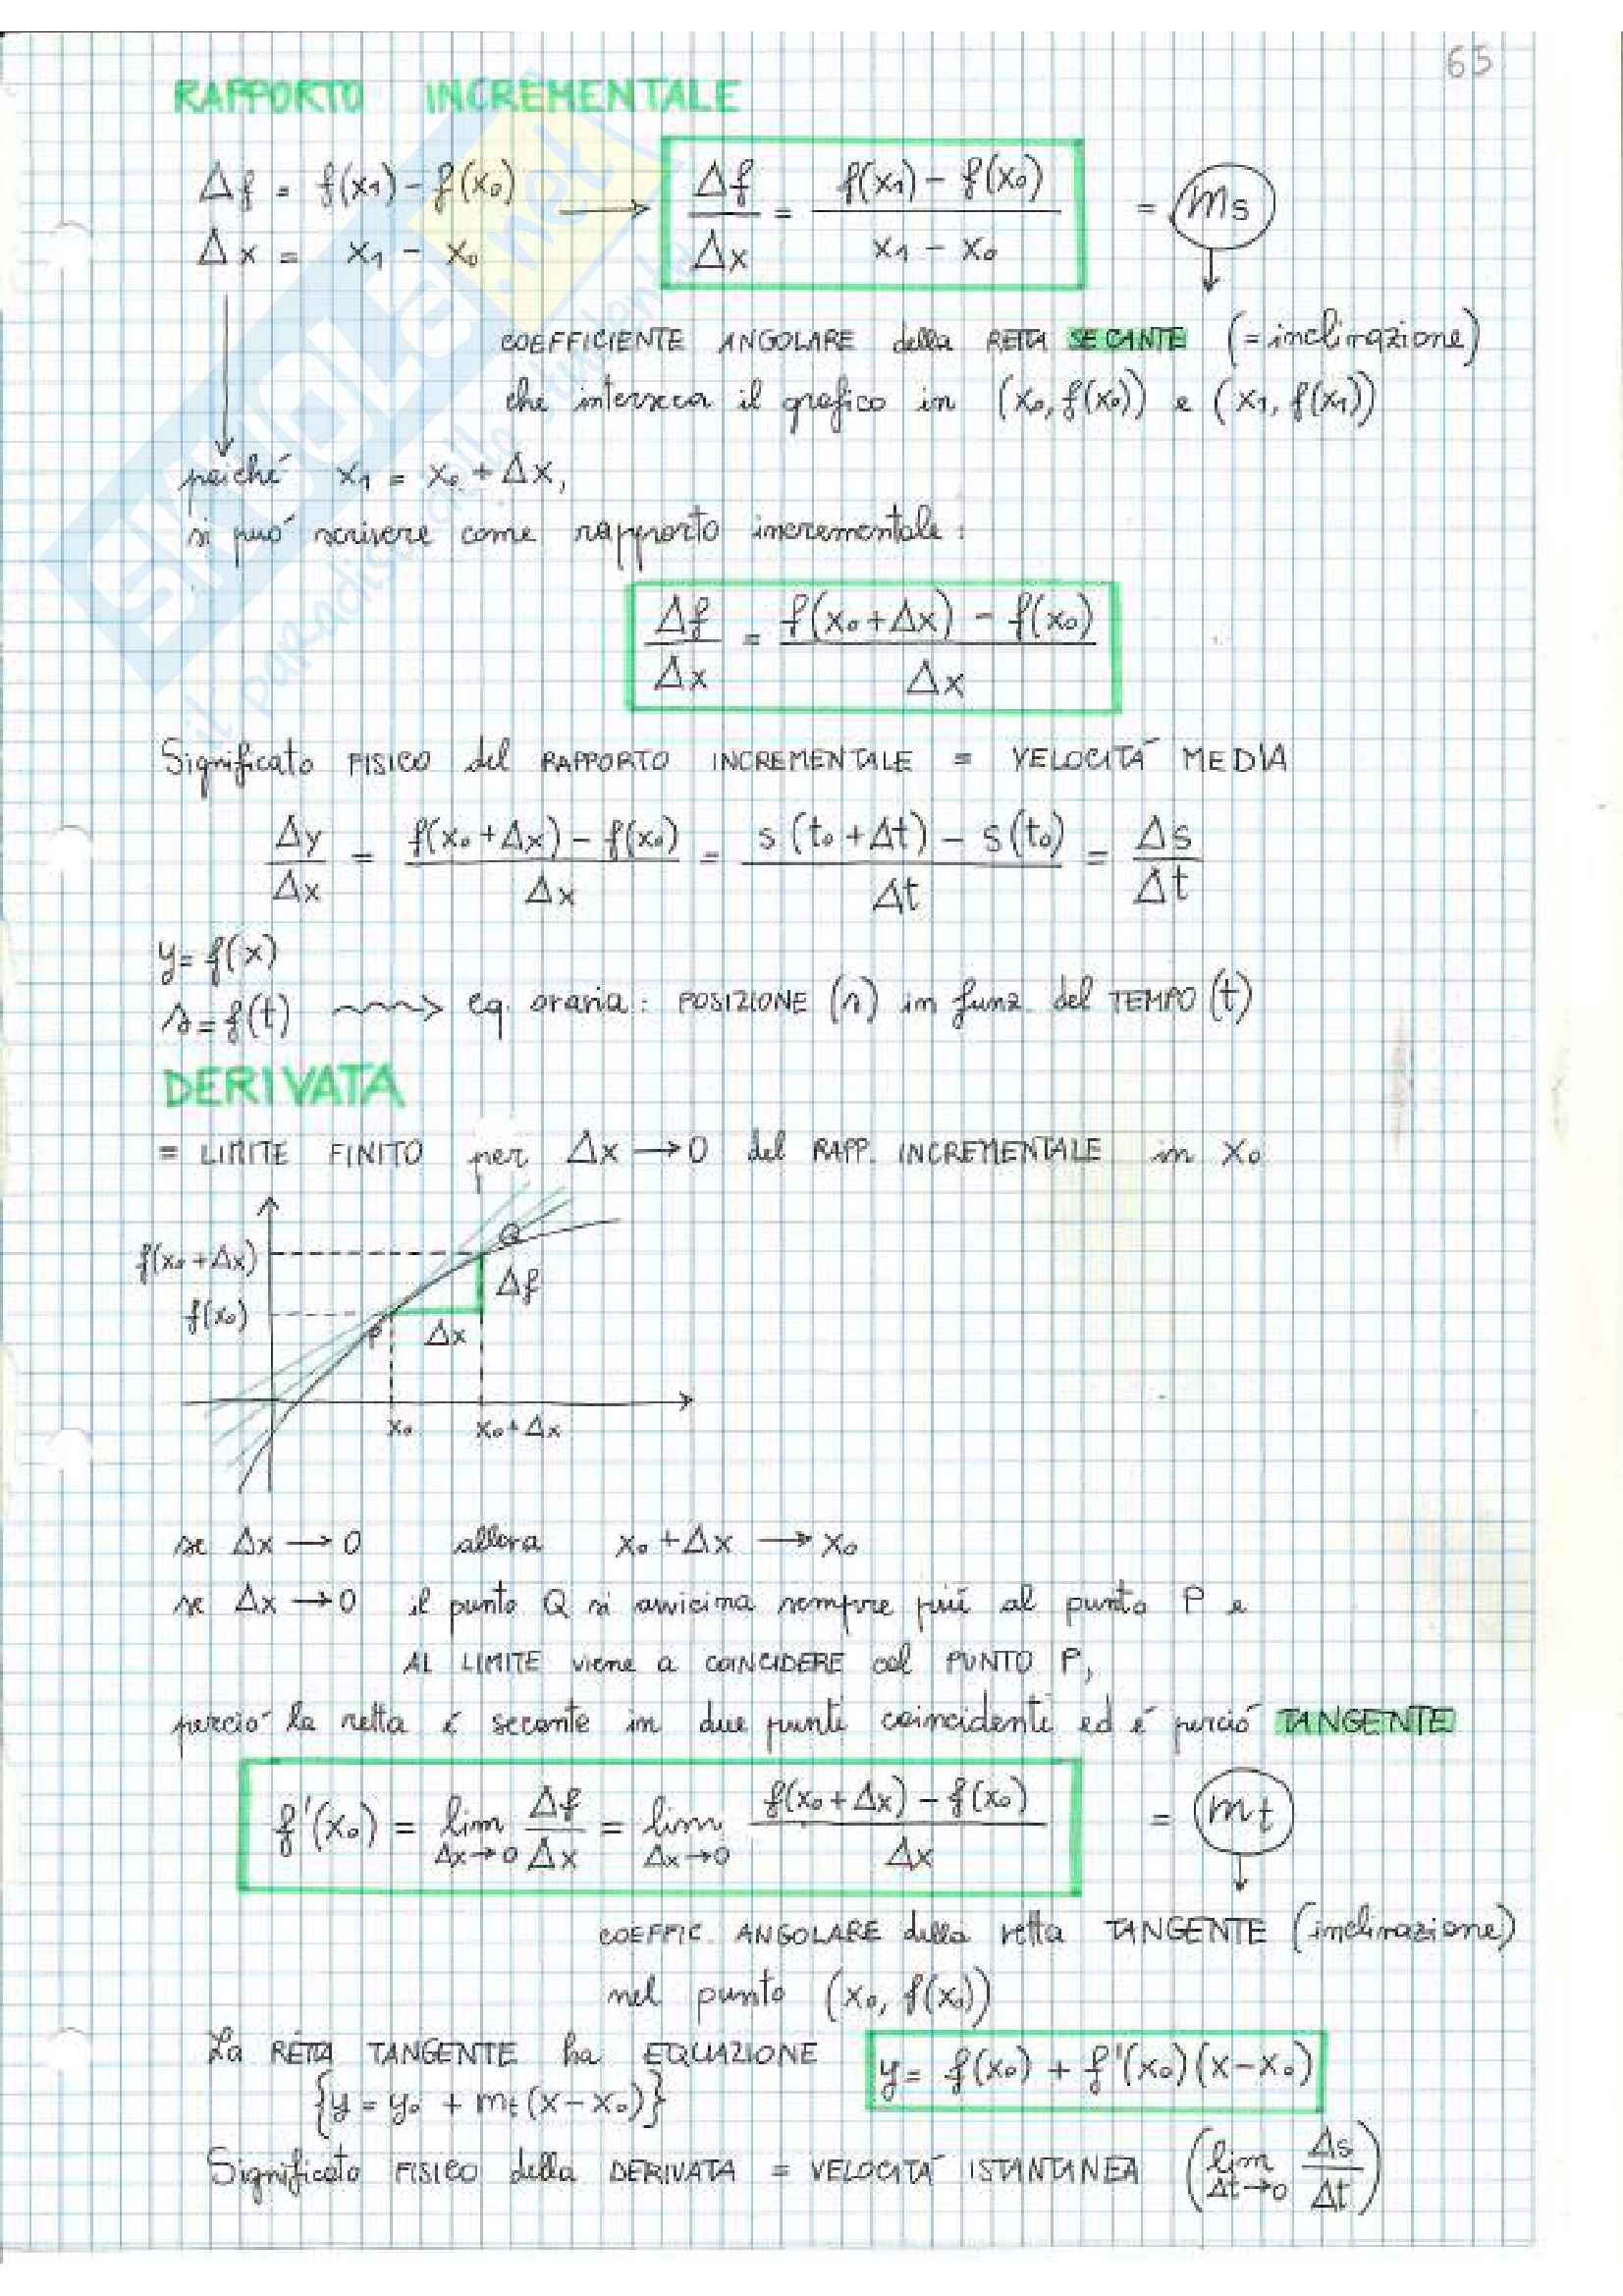 65
RAPPORTO INCREMENTALE
Δf = f(x₁) - f(x₀) → Δf/Δx = (f(x₁) - f(x₀))/(x₁ - x₀) = ms
Δx = x₁ - x₀
COEFFICIENTE ANGOLARE della RETTA SECANTE (= inclinazione)
che interseca il grafico in (x₀, f(x₀)) e (x₁, f(x₁))
poiché x₁ = x₀ + Δx,
si può scrivere come rapporto incrementale:
Δf/Δx = (f(x₀+Δx) - f(x₀))/Δx
Significato FISICO del RAPPORTO INCREMENTALE = VELOCITÁ MEDIA
Δy/Δx = (f(x₀+Δx) - f(x₀))/Δx = (s(t₀+Δt) - s(t₀))/Δt = Δs/Δt
y = f(x)
s = f(t) ⟿ eq. oraria: POSIZIONE (s) in funz. del TEMPO (t)
DERIVATA
= LIMITE FINITO per Δx → 0 del RAPP. INCREMENTALE in x₀
Q
f(x₀+Δx)
Δf
f(x₀)
P
Δx
x₀ x₀+Δx
se Δx → 0 allora x₀ + Δx → x₀
se Δx → 0 il punto Q si avvicina sempre piú al punto P e
AL LIMITE viene a COINCIDERE col PUNTO P,
perció la retta é secante in due punti coincidenti ed é perció TANGENTE
f'(x₀) = lim Δx→0 Δf/Δx = lim Δx→0 (f(x₀+Δx) - f(x₀))/Δx = mt
COEFFIC. ANGOLARE della retta TANGENTE (inclinazione)
nel punto (x₀, f(x₀))
La RETTA TANGENTE ha EQUAZIONE y = f(x₀) + f'(x₀)(x-x₀)
{y = y₀ + mt(x-x₀)}
Significato FISICO della DERIVATA = VELOCITÁ ISTANTANEA (lim Δt→0 Δs/Δt)
SKUOLA.net
il paradiso dello studente